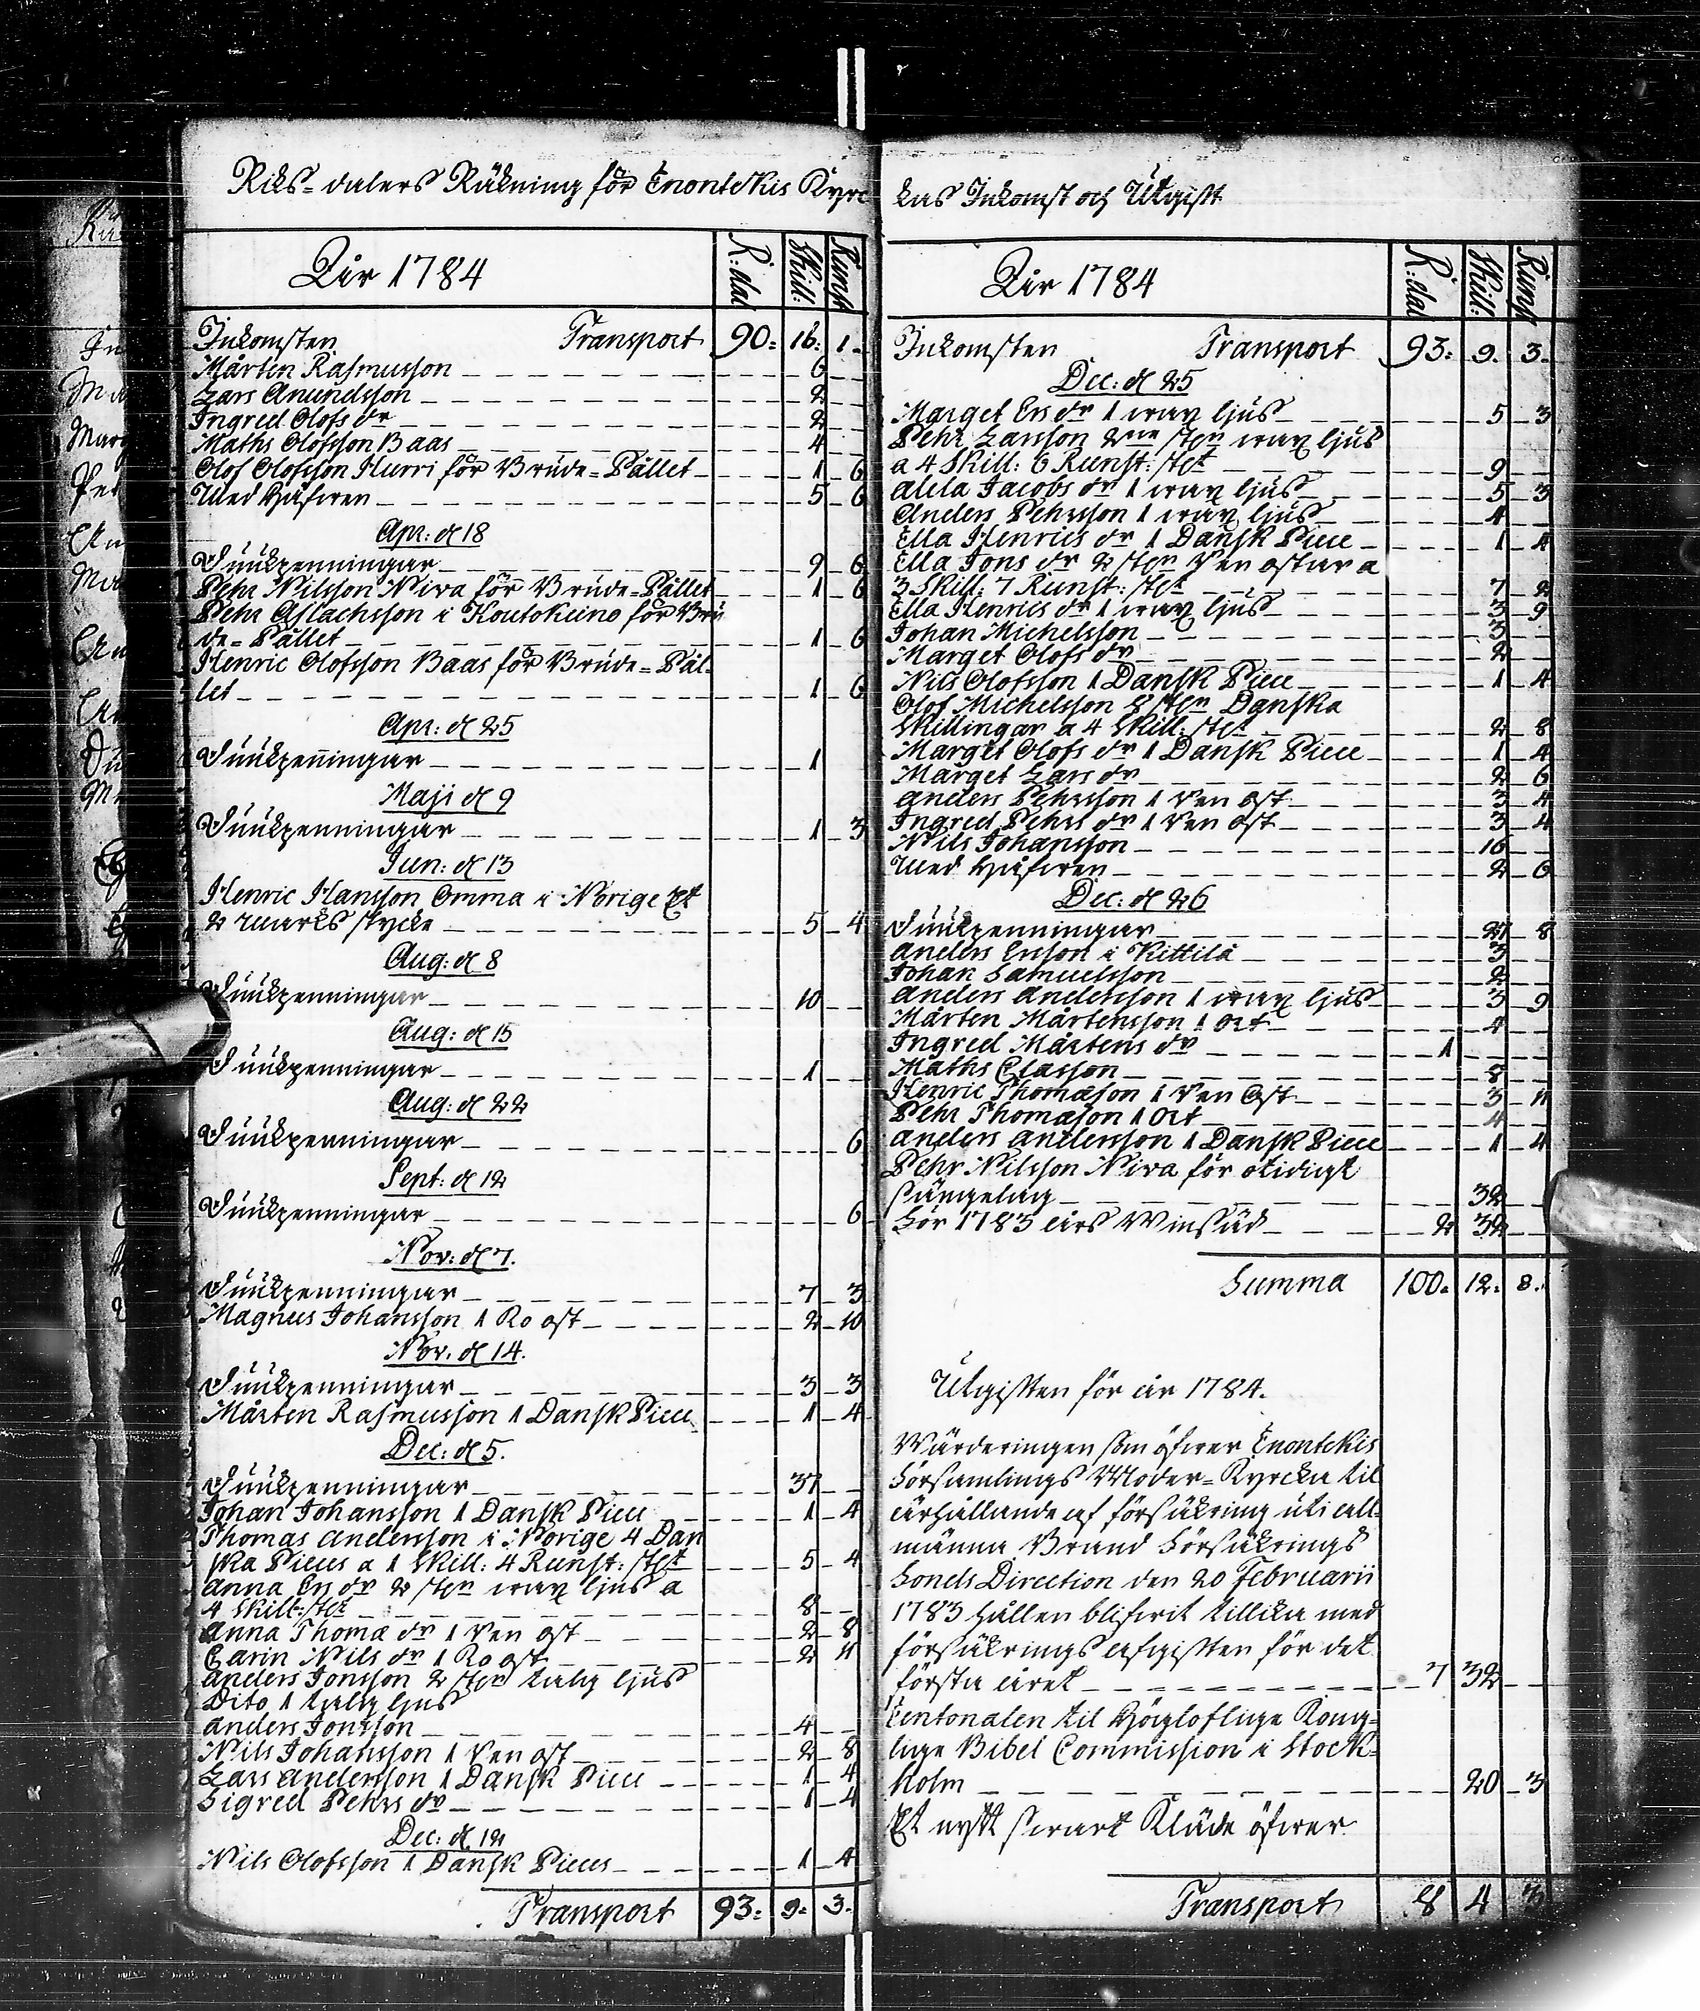 Riks-dalers Räkning för Enontekis Kyrc
Åir 1784
R:dal
Skill:
Runst
Inkomsten Transport 90: 16: 1-
Mårten Rasmusson 6
Lars Anundsson 2
Ingred Olofs dr 2
Maths Olofsson Baas 4
Olof Olofsson Hurri för Brude-Pället 1 6
Med Håfwen 5 6
Apr: d 18
Siukpenningar 9 6
Pehr Nilsson Niva för Brude-Pället 1 6
Pehr Aslachsson i Koutokeino för Bru
de-Pället 1 6
Henric Olofsson Baas för Brude-Päl-
let 1 6
Apr: d 25
Siukpenningar 1
Maji d 9
Siukpenningar 1 3
Jun: d 13
Henric Hansson Omma i Norige Et
2 marks stycke 5 4
Aug: d 8
Siukpenningar 10
Aug: d 15
Siukpenningar 1
Aug: d 22
Siukpenningar 6
Sept: d 12
Siukpenningar 6
Nov: d 7.
Siukpenningar 7 3
Magnus Johansson 1 Ro ost 2 10
Nov. d 14.
Siukpenningar 3 3
Mårten Rasmusson 1 Dansk Piece 1 4
Dec: d 5.
Siukpenningar 37
Johan Johansson 1 Dansk Piece 1 4
Thomas Andersson i Norige 4 Dan
ska Pieces a 1 Skill: 4 Runst: st 5 4
Anna Ers dr 2 sten wax ljus a
4 Skill: st 8
Anna Thomæ dr 1 Ren ost 2 8
Carin Nils dr 1 Ro ost 2 11
Anders Jonsson 2 sten talg ljus
Dito 1 talg ljus
Anders Jonsson 4
Nils Johansson 1 Ren ost 2 8
Lars Andersson 1 Dansk Piece 1 4
Sigred Pehrs dr 1 4
Dec: d 12
Nils Olofsson 1 Dansk Pieces 1 4
Transport 93: 9: 3.
kas Inkomst och Utgift
Åir 1784
R:dal
Skill:
Runst
Inkomsten Transport 93: 9. 3-
Dec: d 25
Marget Ers dr 1 wax ljus 5 3
Pehr Larsson 2ne sten wax ljus
a 4 Skill: 6 Runst: st 9
Alela Jacobs dr 1 wax ljus 5 3
Anders Pehrsson 1 wax ljus 4
Ella Henrics dr 1 Dansk Piece 1 4
Ella Jons dr 2 sten Ren ostar a
3 Skill: 7 Runst: st 7 2
Ella Henrics dr 1 wax ljus 3 9
Johan Michelsson 3
Marget Olofs dr 2
Nils Olofsson 1 Dansk Piece 1 4
Olof Michelsson 8 sten Danska
Skillingar a 4 Skill: st 2 8
Marget Olofs dr 1 Dansk Piece 1 4
Marget Lars dr 2 6
Anders Pehrsson 1 Ren ost 3 4
Ingred Pehrs dr 1 Ren ost 3 4
Nils Johansson 16
Med Håfwen 2 6
Dec: d 26
Siukpenningar 21 8
Anders Ersson i Kittilä 3
Johan Samuelsson 2
Anders Andersson 1 wax ljus 3 9
Mårten Mårtensson 1 Ort 4
Ingred Mårtens dr 1
Maths Classon 8
Henric Thomæson 1 Ren Ost 3 11
Pehr Thomæson 1 Ort 4
Anders Andersson 1 Dansk Piece 1 4
Pehr Nilsson Niva för otidigt
sängelag 32
För 1783 års Winsäd 2 32
Summa 100. 12: 8.
Utgiften för år 1784.
Wärderingen som öfwer Enontekis
Församlings Moder-Kyrcka til
ärhållande af försäkring uti all-
männa Brand Försäkrings
Fonds Direction den 20 Februarii
1783 hållen blifwit tillika med
försäkrings afgiften för det
första året 7 32
Centonalen til Höglofliga Kong-
lige Bibel Commission i Stock-
holm 20 3
Et nytt swart Kläde öfwer
Transport 8 4 3